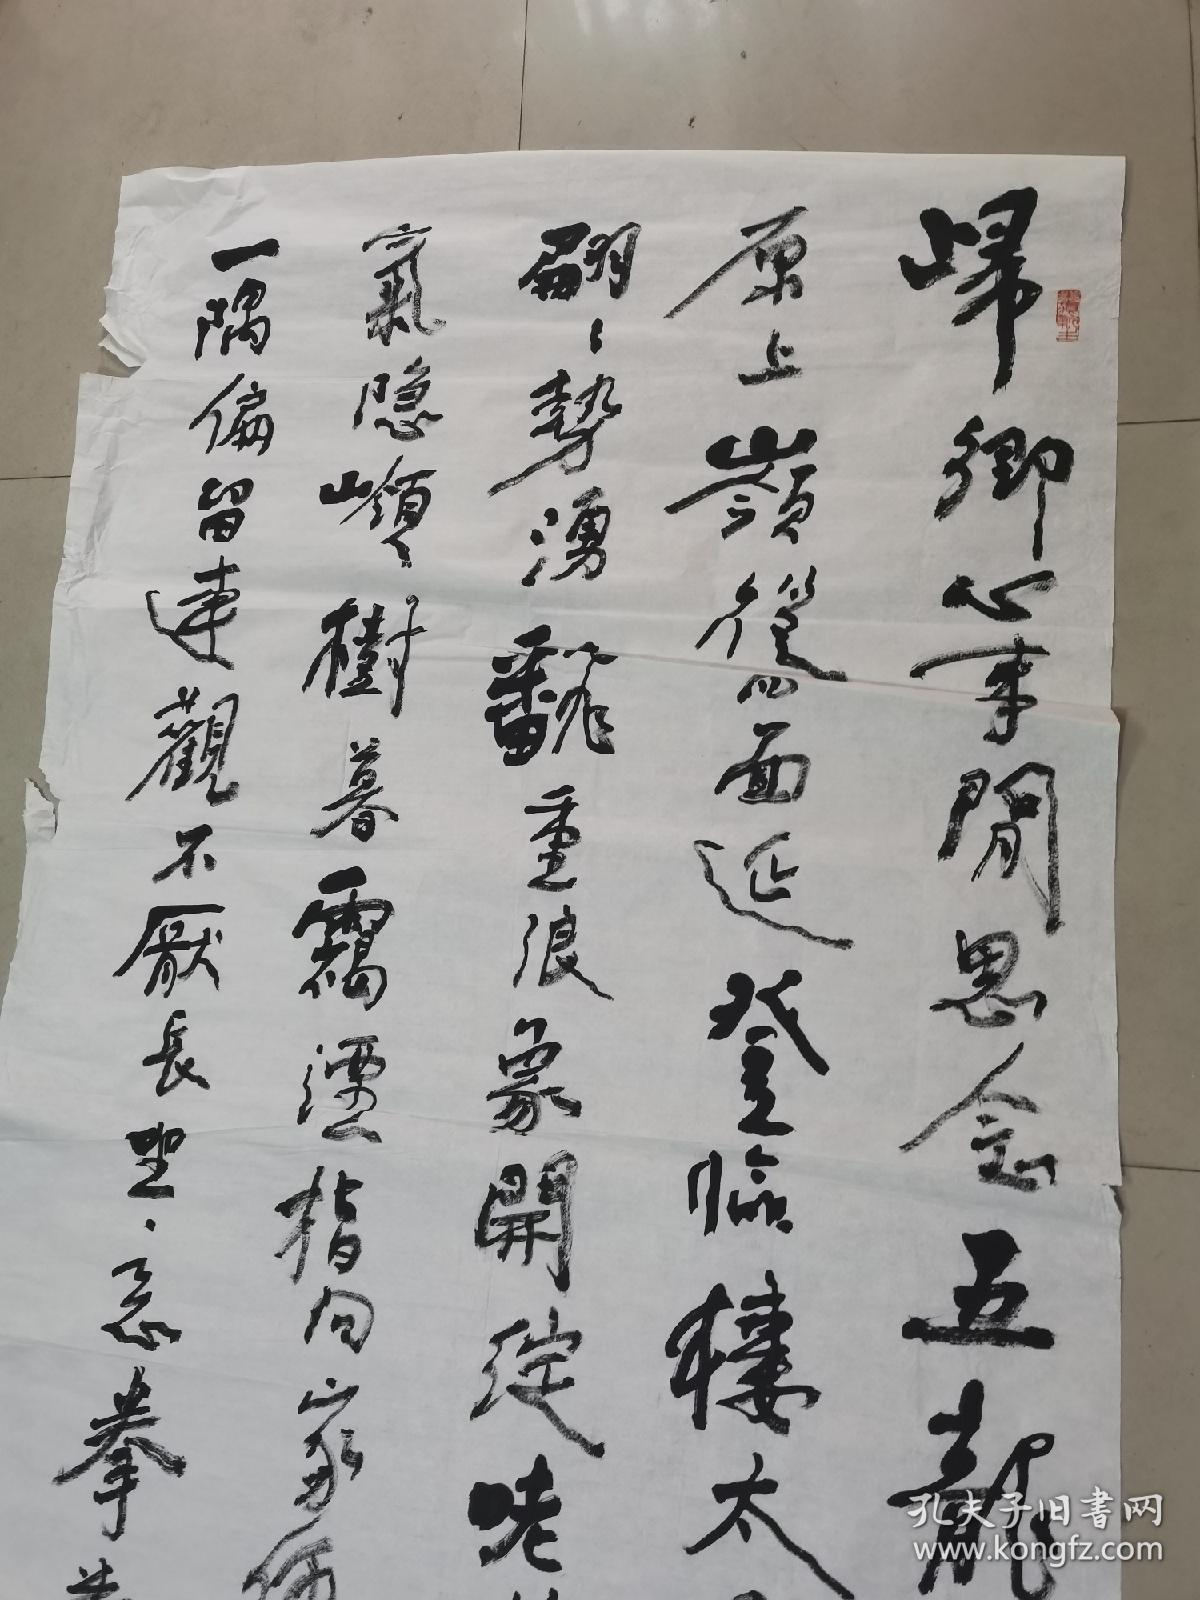 歸鄉心事閒思念五龍
原上嶺從四面延登臨樓太
翩〻勢湧翻重浪象開綻咾
氣隐嶺〻樹暮靄湮指向家
一隅偏留連觀不厭長望、忘拳
孔夫子旧书网
www.kongfz.com